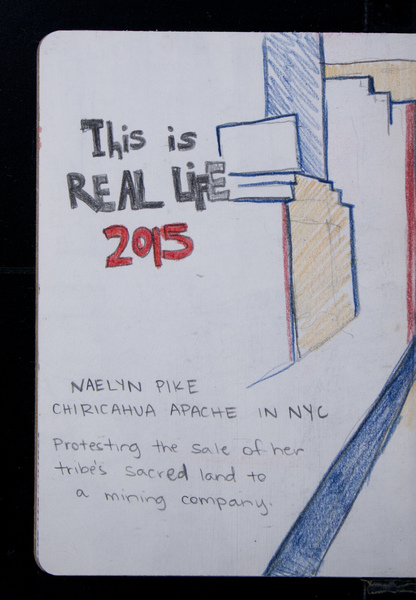 This is
REAL LiFE
2015
NAELYN PIKE
CHIRICAHUA APACHE IN NYC
Protesting the sale of her
tribe's sacred land to
a mining company.